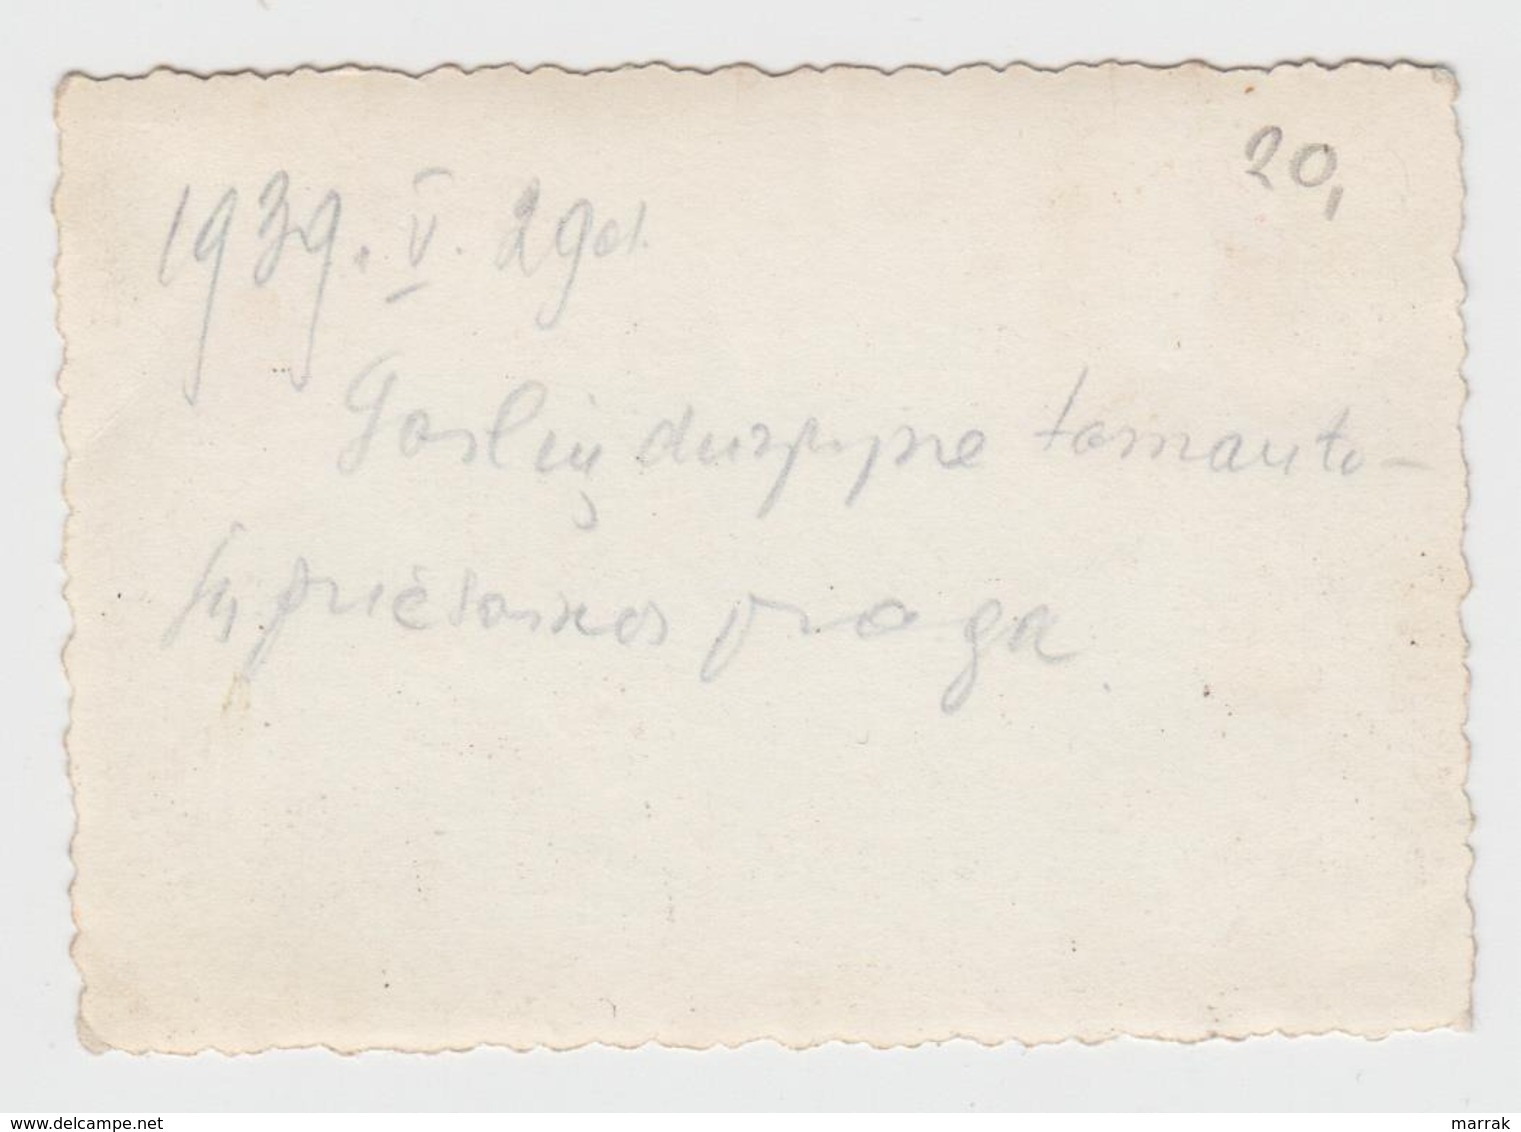 20,
1939. V. 29 d.
Goslių durpyne tarnauto-
jų priesaikos proga
delcampe.net
marrak